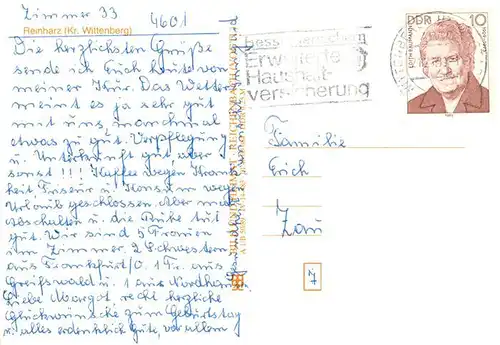 Zimmer 33
4601
Reinharz (Kr. Wittenberg)
Die herzlichsten Grüße
sende ich Euch heute von
meiner Kur. Das Wetter
meint es ja sehr gut
mit uns, manchmal
etwas zu gut. Verpflegung
u. Unterkunft gut, aber
sonst!!! Kaffee wegen Krank
heit Friseur u. Konsum wegen
Urlaub geschlossen. Aber mal
Abschalten u. die Ruhe tut
gut. Wir sind 5 Frauen
im Zimmer. 2 Schwestern
aus Frankfurt/O. 1 Fr. aus
Greifswald u. 1 aus Nordhausen
Liebe Margot, recht herzliche
Glückwünsche zum Geburtstag
u. alles erdenklich Gute, vor allem
Gesundheit
Erweiterte
Haushalt-
versicherung
DDR 10
Familie
Erich
Zau